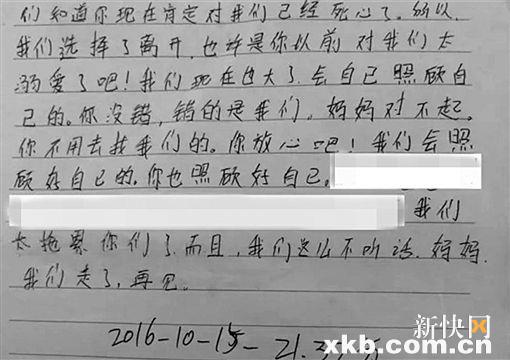 们知道你现在肯定对我们已经死心了。所以
我们选择了离开,也许是你以前对我们太
溺爱了吧!我们现在也大了.会自己照顾自
己的。你没错,错的是我们。妈妈对不起。
你不用去找我们的。你放心吧!我们会照
顾好自己的.你也照顾好自己.
我们
太拖累你们了.而且,我们这么不听话.妈妈.
我们走了,再见。
2016-10-15- 21.3
新快网
xkb.com.cn